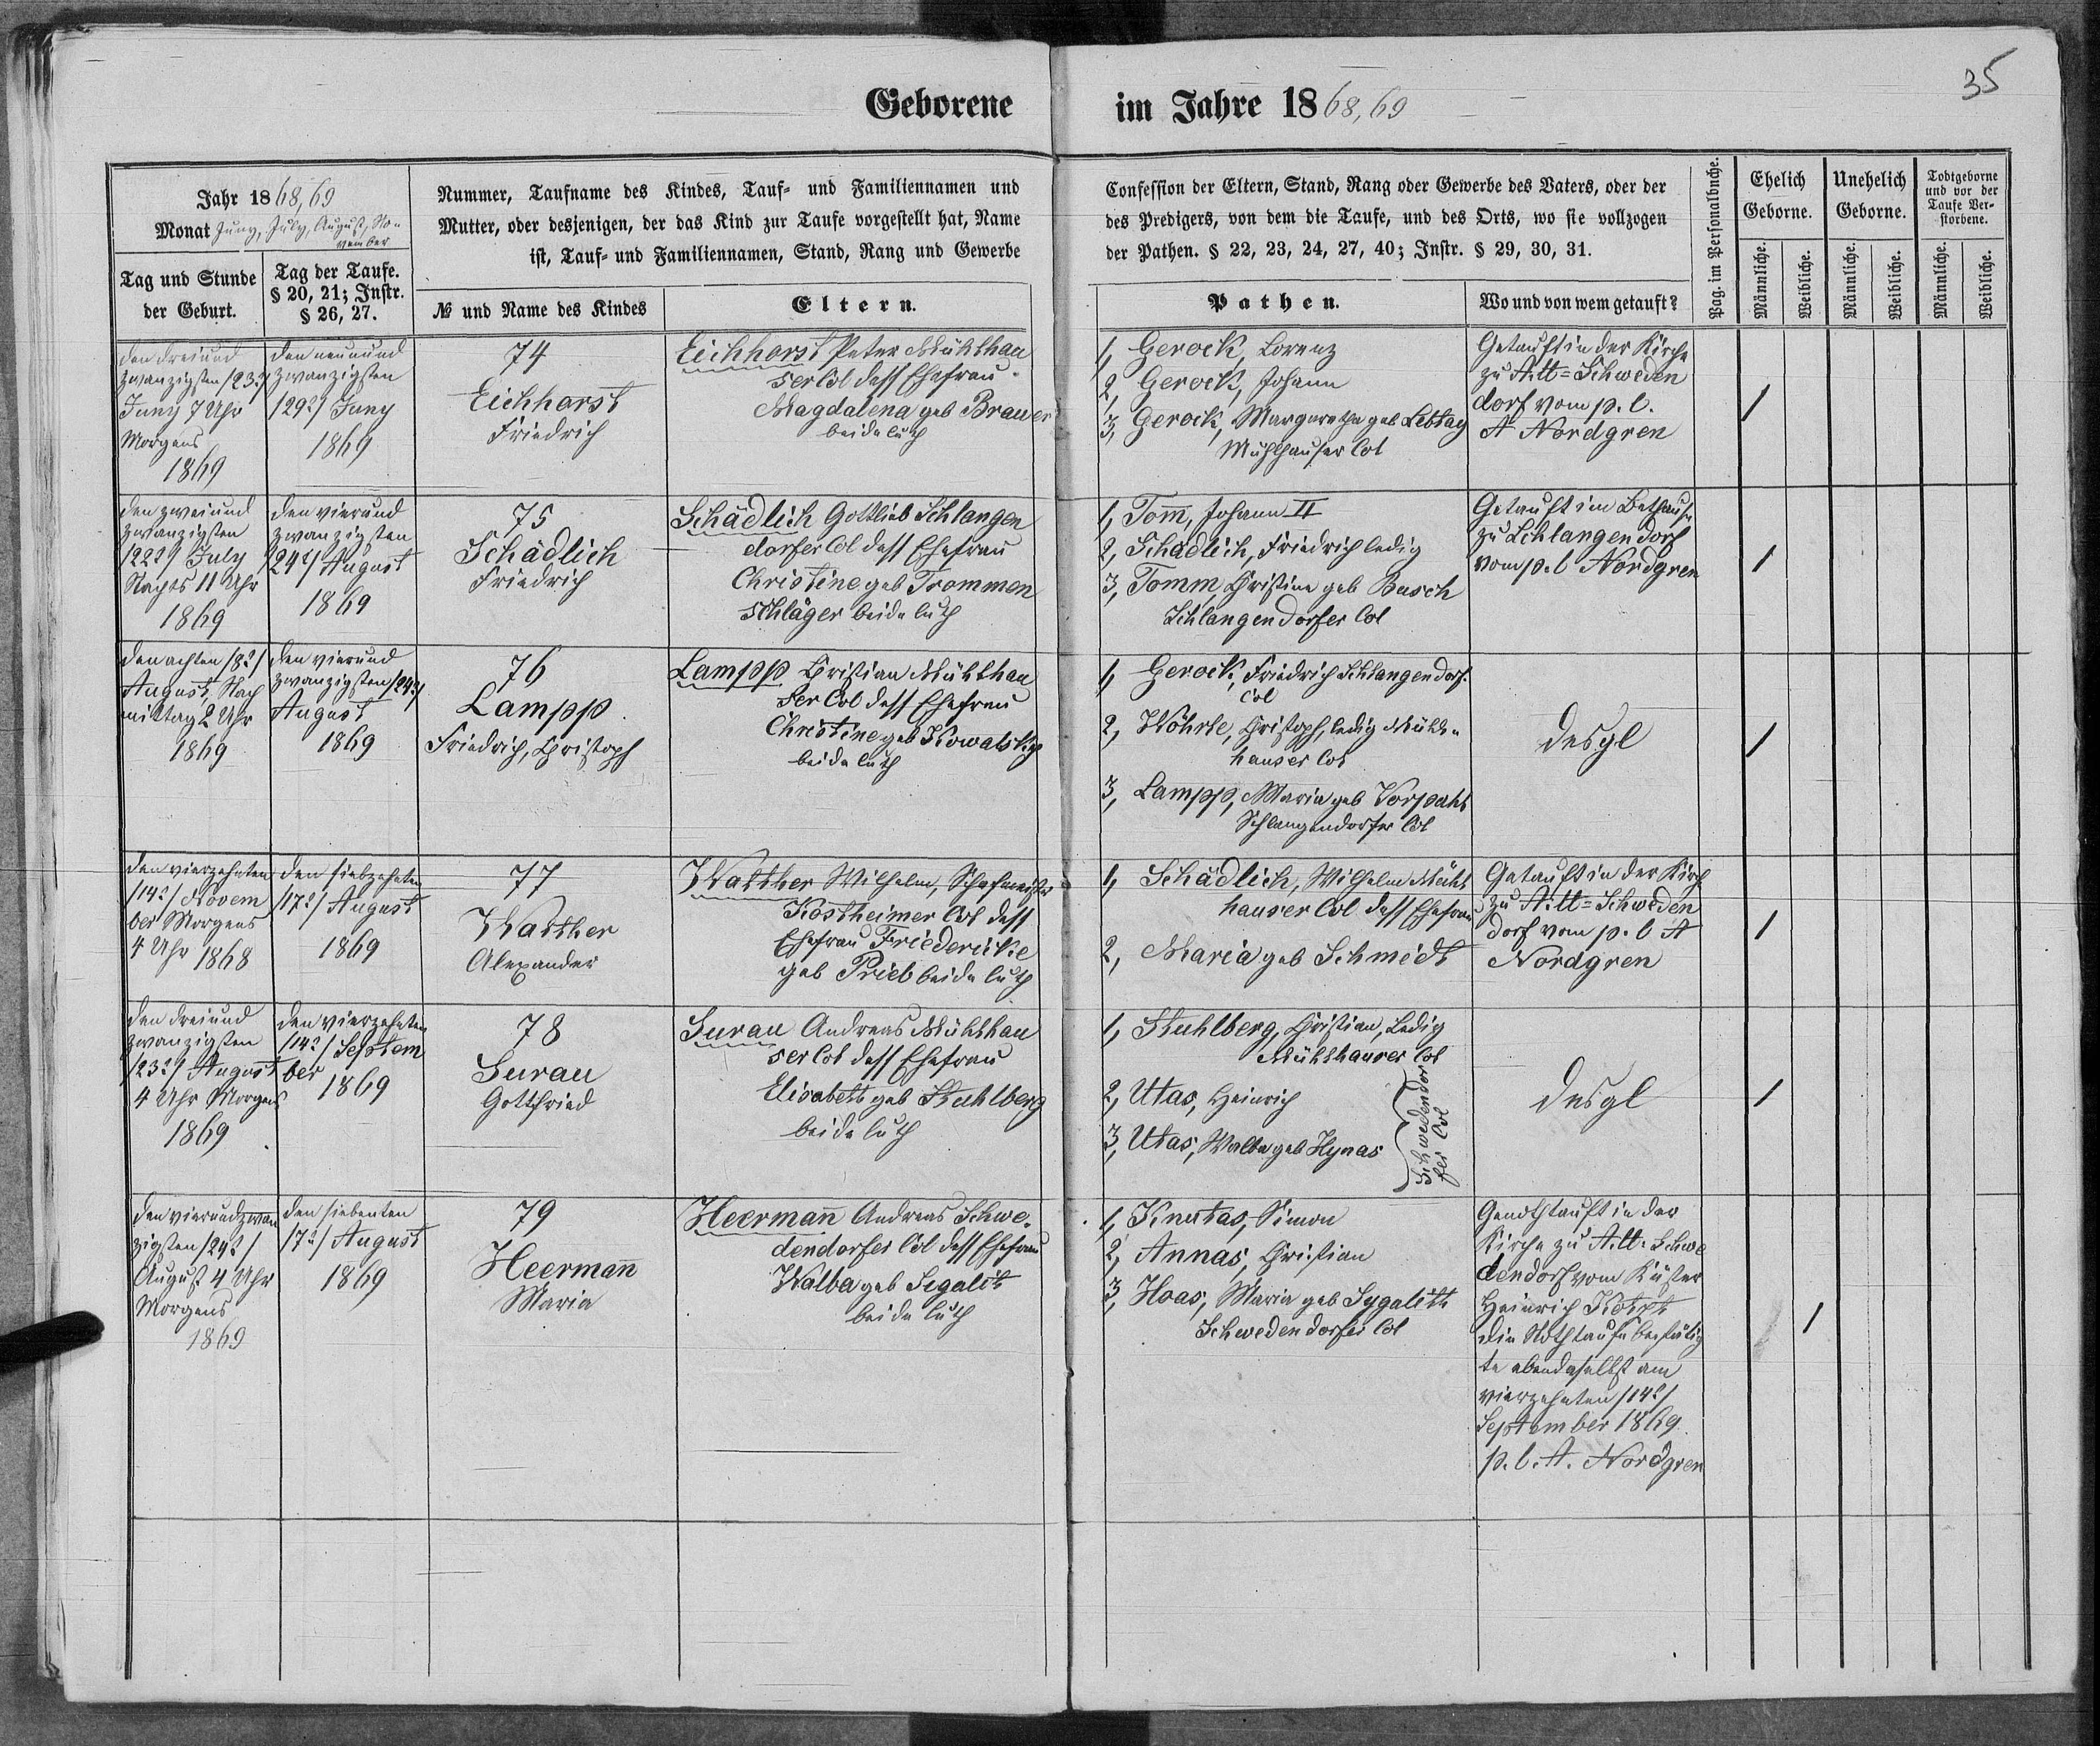 35
Geborene im Jahre 1868,69
Jahr 1868,69
Monat Juny, July, August, No-
vember
Nummer, Taufname des Kindes, Tauf- und Familiennamen und
Mutter, oder desjenigen, der das Kind zur Taufe vorgestellt hat, Name
ist, Tauf- und Familiennamen, Stand, Rang und Gewerbe
Confession der Eltern, Stand, Rang oder Gewerbe des Vaters, oder der
des Predigers, von dem die Taufe, und des Orts, wo sie vollzogen
der Pathen. § 22, 23, 24, 27, 40; Instr. § 29, 30, 31.
Pag. im Personalbuche.
Ehelich
Geborne.
Unehelich
Geborne.
Todtgeborne
und vor der
Taufe Ver-
storbene.
Tag und Stunde
der Geburt.
Tag der Taufe.
§ 20, 21; Instr.
§ 26, 27.
№ und Name des Kindes
Eltern.
Pathen.
Wo und von wem getauft?
Männliche.
Weibliche.
Männliche.
Weibliche.
Männliche.
Weibliche.
den dreiund
zwanzigsten /23?/
Juny 7 Uhr
Morgens
1869
den neunund
zwanzigsten
/29?/ Juny
1869
74
Eichhorst
Friedrich
Eichhorst Peter Mühlhau
ser Col dess Ehefrau
Magdalena geb Brauer
beide luth
1, Gerock, Lorenz
2, Gerock, Johann
3, Gerock, Margaretha geb Lebtag
Mühlhauser Col
Getauft in der Kirche
zu Alt=Schweden
dorf vom p. l.
A Nordgren
/
den zweiund
zwanzigsten
/22?/ July
Nachts 11 Uhr
1869
den vierund
zwanzigsten
/24?/ August
1869
75
Schädlich
Friedrich
Schädlich Gottlieb Schlangen
dorfer Col dess Ehefrau
Christine geb Trommen
schläger beide luth
1, Tom̅, Johann II
2, Schädlich, Friedrich ledig
3, Tomm, Christina geb Busch
Schlangendorfer Col
Getauft im Bethause
zu Schlangendorf
vom p. l Nordgren
/
den achten /8?/
August, Nach
mittag 2 Uhr
1869
den vierund
zwanzigsten /24?/
August
1869
76
Lampp
Friedrich, Christoph
Lampp Christian Mühlhau
ser Col dess Ehefrau
Christine geb Kowalsky
beide luth
1, Gerock, Friedrich Schlangendorf.
Col
2, Wöhrle, Christoph, ledig Mühl-
hauser Col
3, Lampp, Maria geb Vorpahl
Schlangendorfer Col
desgl
/
den vierzehnten
/14?/ Novem
ber Morgens
4 Uhr 1868
den siebzehnten
/17?/ August
1869
77
Walther
Alexander
Walther Wilhelm, Schafmeister
Kostheimer Col dess
Ehefrau Friedericke
geb Prieb beide luth
1, Schädlich, Wilhelm Mühl
hauser Col dess Ehefrau
2, Maria geb Schmidt
Getauft in der Kirch
zu Alt=Schweden
dorf vom p. l A
Nordgren
/
den dreiund
zwanzigsten
/23?/ August
4 Uhr Morgens
1869
den vierzehnten
/14?/ Septem
ber
1869
78
Surau
Gottfried
Surau Andreas Mühlhau
ser Col dess Ehefrau
Elisabeth geb Stuhlberg
beide luth
1, Stuhlberg, Christian, Ledig
Mühlhauser Col
2, Utas, Heinrich
3, Utas, Walba geb Hynas
Schwedendor
fer Col
desgl
/
den vierundzwan
zigsten /24?/
August 4 Uhr
Morgens
1869
den siebenten
/7?/ August
1869
79
Heerman̅
Maria
Heerman̅ Andreas Schwe-
dendorfer Col dess Ehefrau
Walba geb Sigalit
beide luth
1, Knutas, Simon
2, Annas, Christian
3, Hoas, Maria geb Sygaleth
Schwedendorfer Col
Genothtauft in der
Kirche zu Alt-Schwe
dendorf vom Küster
Heinrich
die Nothtaufe bestätig
te ebendaselbst am
vierzehnten /14?/
September 1869
p. l. A. Nordgren
/